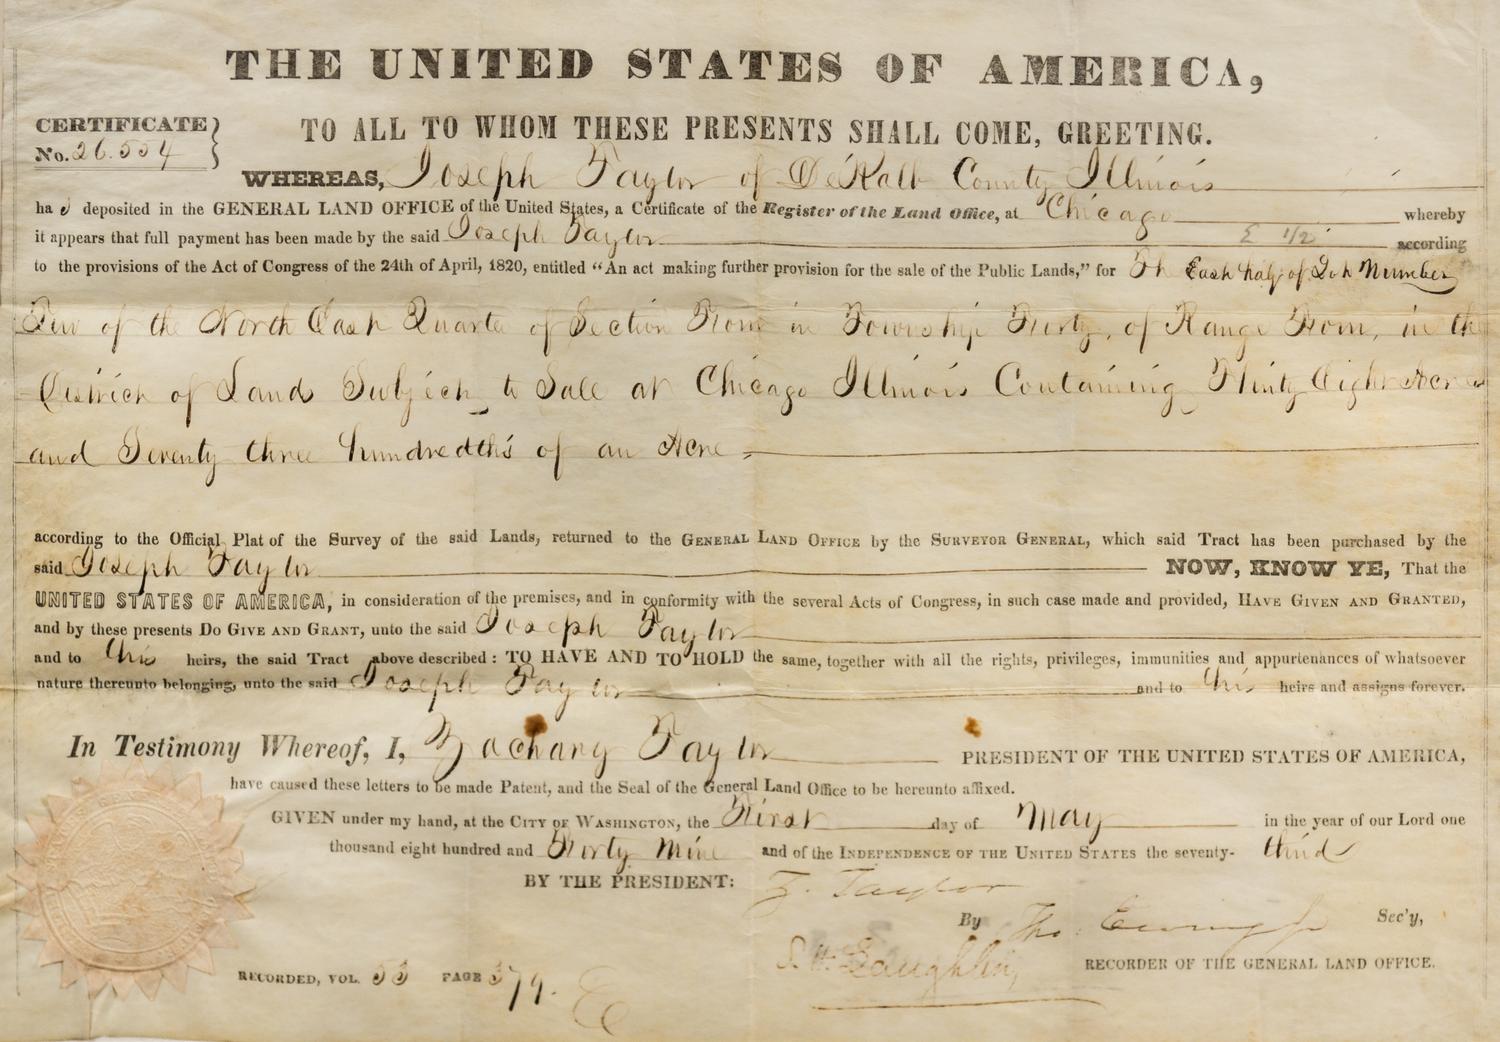 THE UNITED STATES OF AMERICA,
CERTIFICATE
No. 26.554
TO ALL TO WHOM THESE PRESENTS SHALL COME, GREETING.
WHEREAS, Joseph Taylor of DeKalb County Illinois
ha s deposited in the GENERAL LAND OFFICE of the United States, a Certificate of the Register of the Land Office, at Chicago whereby
it appears that full payment has been made by the said Joseph Taylor E 1/2 according
to the provisions of the Act of Congress of the 24th of April, 1820, entitled “An act making further provision for the sale of the Public Lands,” for The East half of Lot Number
of the North East Quarter of Section Four in Township Forty, of Range Four, in the
District of Lands Subject to Sale at Chicago Illinois Containing Thirty Eight Acres
and Seventy three hundredths of an Acre
according to the Official Plat of the Survey of the said Lands, returned to the GENERAL LAND OFFICE by the SURVEYOR GENERAL, which said Tract has been purchased by the
said Joseph Taylor NOW, KNOW YE, That the
UNITED STATES OF AMERICA, in consideration of the premises, and in conformity with the several Acts of Congress, in such case made and provided, HAVE GIVEN AND GRANTED,
and by these presents DO GIVE AND GRANT, unto the said Joseph Taylor
and to his heirs, the said Tract above described: TO HAVE AND TO HOLD the same, together with all the rights, privileges, immunities and appurtenances of whatsoever
nature thereunto belonging, unto the said Joseph Taylor and to his heirs and assigns forever.
In Testimony Whereof, I, Zachary Taylor PRESIDENT OF THE UNITED STATES OF AMERICA,
have caused these letters to be made Patent, and the Seal of the General Land Office to be hereunto affixed.
GIVEN under my hand, at the CITY OF WASHINGTON, the First day of May in the year of our Lord one
thousand eight hundred and Forty Nine and of the INDEPENDENCE OF THE UNITED STATES the seventy- third
BY THE PRESIDENT: Z. Taylor
By Tho. Ewing Jr Sec'y,
S. H. Laughlin, RECORDER OF THE GENERAL LAND OFFICE.
RECORDED, VOL. 53 PAGE 379.